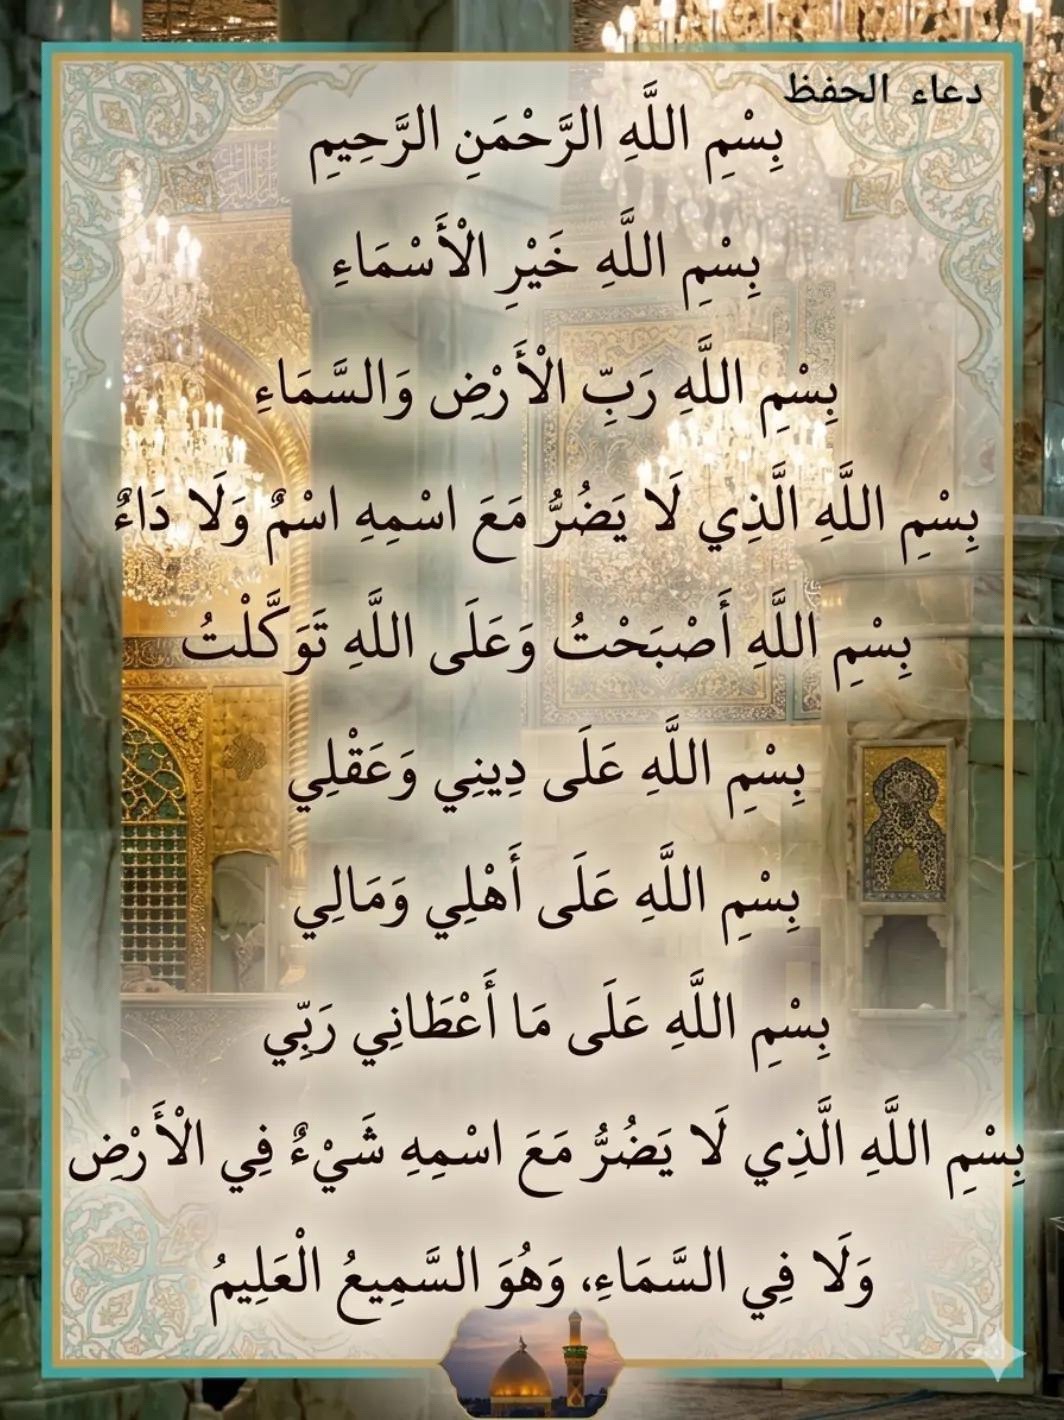 دعاء الحفظ
بِسْمِ اللَّهِ الرَّحْمَنِ الرَّحِيمِ
بِسْمِ اللَّهِ خَيْرِ الْأَسْمَاءِ
بِسْمِ اللَّهِ رَبِّ الْأَرْضِ وَالسَّمَاءِ
بِسْمِ اللَّهِ الَّذِي لَا يَضُرُّ مَعَ اسْمِهِ اسْمٌ وَلَا دَاءٌ
بِسْمِ اللَّهِ أَصْبَحْتُ وَعَلَى اللَّهِ تَوَكَّلْتُ
بِسْمِ اللَّهِ عَلَى دِينِي وَعَقْلِي
بِسْمِ اللَّهِ عَلَى أَهْلِي وَمَالِي
بِسْمِ اللَّهِ عَلَى مَا أَعْطَانِي رَبِّي
بِسْمِ اللَّهِ الَّذِي لَا يَضُرُّ مَعَ اسْمِهِ شَيْءٌ فِي الْأَرْضِ
وَلَا فِي السَّمَاءِ، وَهُوَ السَّمِيعُ الْعَلِيمُ